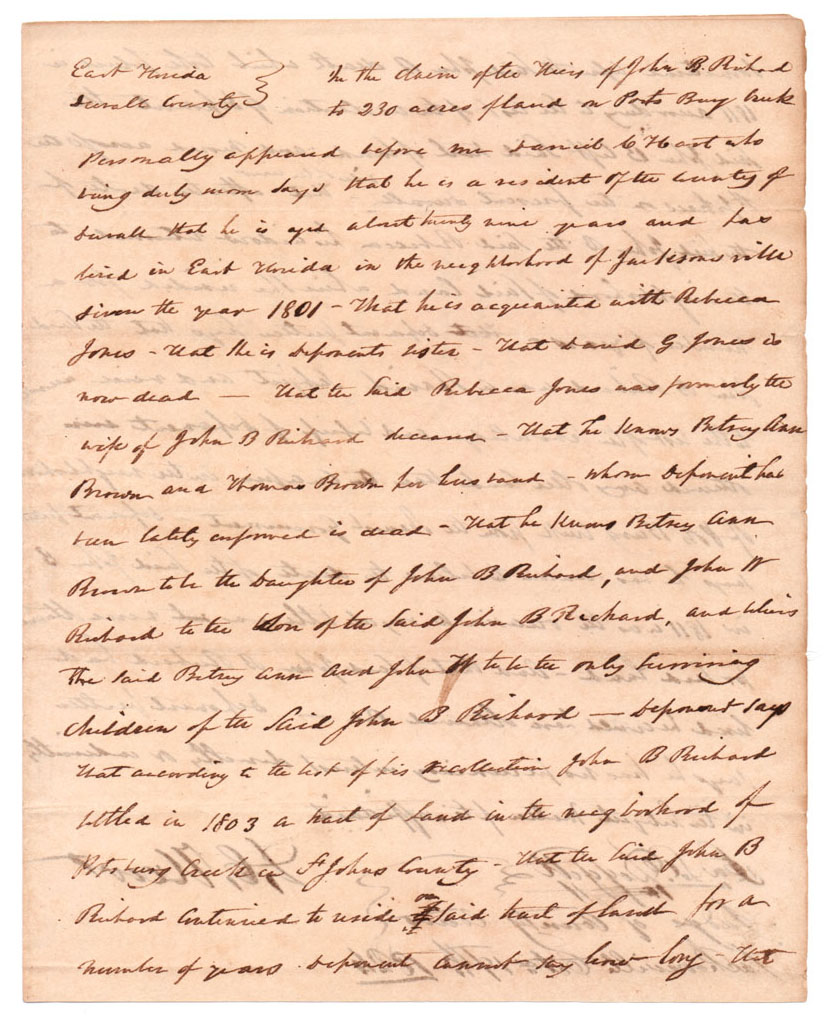 East Florida } In the Claim of the Heirs of John B. Richard
Duvall County } to 230 acres of land on Potts Burg Creek
Personally appeared before me Daniel C Hart who
being duly sworn says that he is a resident of the County of
Duvall that he is aged about twenty nine years and has
lived in East Florida in the neighborhood of Jacksonville
since the year 1801 - That he is acquainted with Rebecca
Jones - that she is Deponents sister - that David G Jones is
now dead — that the said Rebecca Jones was formerly the
wife of John B Richard deceased - That he knows Betsey Ann
Brown and Thomas Brown her husband - whom Deponent has
been lately informed is dead - that he knows Betsey Ann
Brown to be the Daughter of John B Richard, and John W
Richard to be the son of the said John B Richard, and
The said Betsey Ann and John W to be the only surviving
children of the said John B Richard — Deponent says
that according to the best of his recollection John B Richard
settled in 1803 a tract of land in the neighborhood of
Potsburg Creek in St Johns County - that the said John B
Richard continued to reside on said tract of land for a
number of years Deponent cannot say how long - that